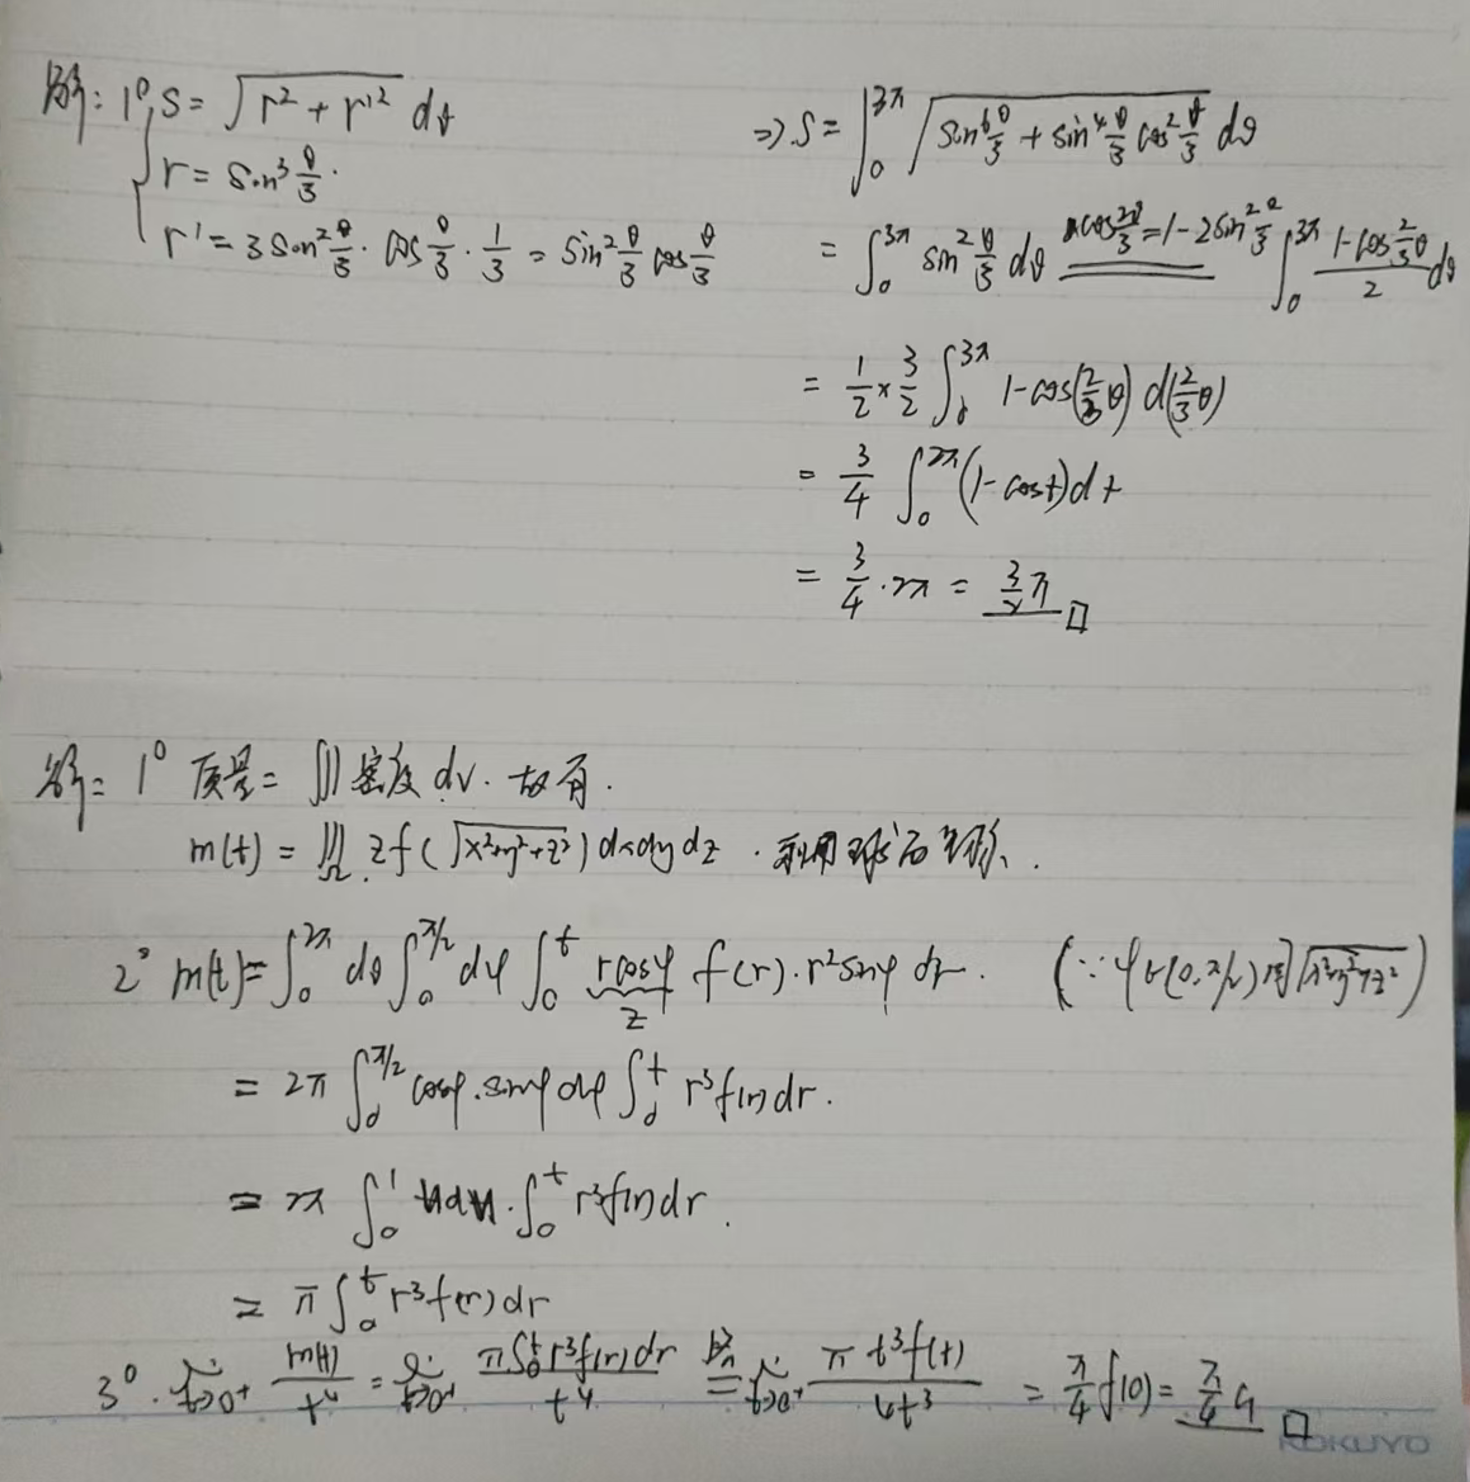 解: 1° S = √(r² + r'²) dθ
r = sin³ θ/3.
r' = 3 sin² θ/3 · cos θ/3 · 1/3 = sin² θ/3 cos θ/3
⇒ S = ∫₀^{3π} √(sin⁶ θ/3 + sin⁴ θ/3 cos² θ/3) dθ
= ∫₀^{3π} sin² θ/3 dθ cos 2θ/3 = 1 - 2sin² θ/3 ∫₀^{3π} (1 - cos 2/3 θ)/2 dθ
= 1/2 × 3/2 ∫₀^{3π} 1 - cos(2/3 θ) d(2/3 θ)
= 3/4 ∫₀^{2π} (1 - cos t) dt
= 3/4 · 2π = 3/2 π □
解: 1° 质量 = ∭ 密度 dv. 故有.
m(t) = ∭_Ω z f(√(x²+y²+z²)) dxdydz . 利用球
2° m(t) = ∫₀^{2π} dθ ∫₀^{π/2} dφ ∫₀^t r cosφ f(r) · r² sinφ dr. (∵ φ∈(0, π/2) √(x²+y²+z²))
z
= 2π ∫₀^{π/2} cosφ · sinφ dφ ∫₀^t r³ f(r) dr.
= 2π ∫₀¹ u du · ∫₀^t r³ f(r) dr.
= π ∫₀^t r³ f(r) dr
3°. lim_{t→0⁺} m(t)/t⁴ = lim_{t→0⁺} π∫₀^t r³ f(r) dr / t⁴ = lim_{t→0⁺} π t³ f(t) / 4t³ = π/4 f(0) = π/4 a □
KOKUYO